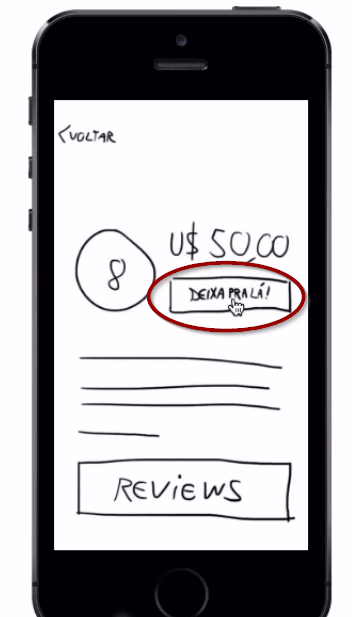 <VOLTAR
U$ 50,00
8
DEIXA PRA LÁ!
REVIEWS